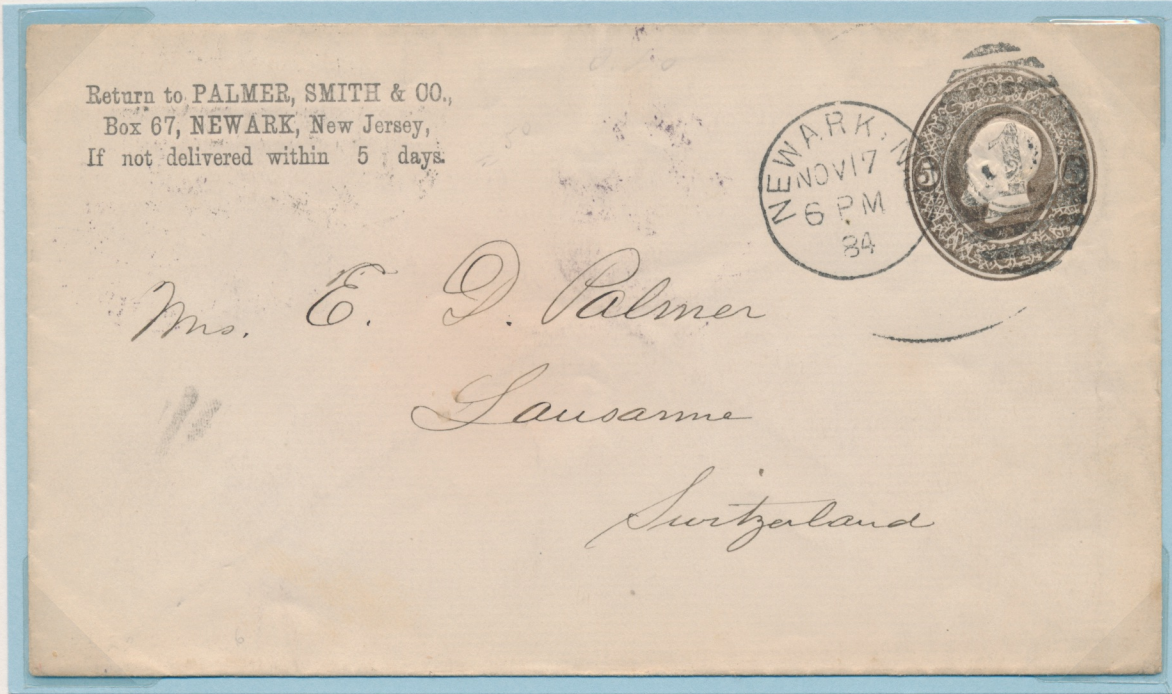 Return to PALMER, SMITH & CO.,
Box 67, NEWARK, New Jersey,
If not delivered within 5 days.
NEWARK, N
NOV 17
6 PM
84
U.S. POSTAGE
5
1
Mrs. E. D. Palmer
Lausanne
Switzerland